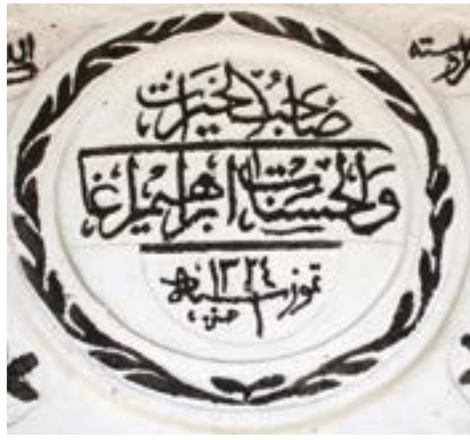 صاحب الخيرات
والحسنات ابراهيم اغا
تموز سنه ١٣٢٤